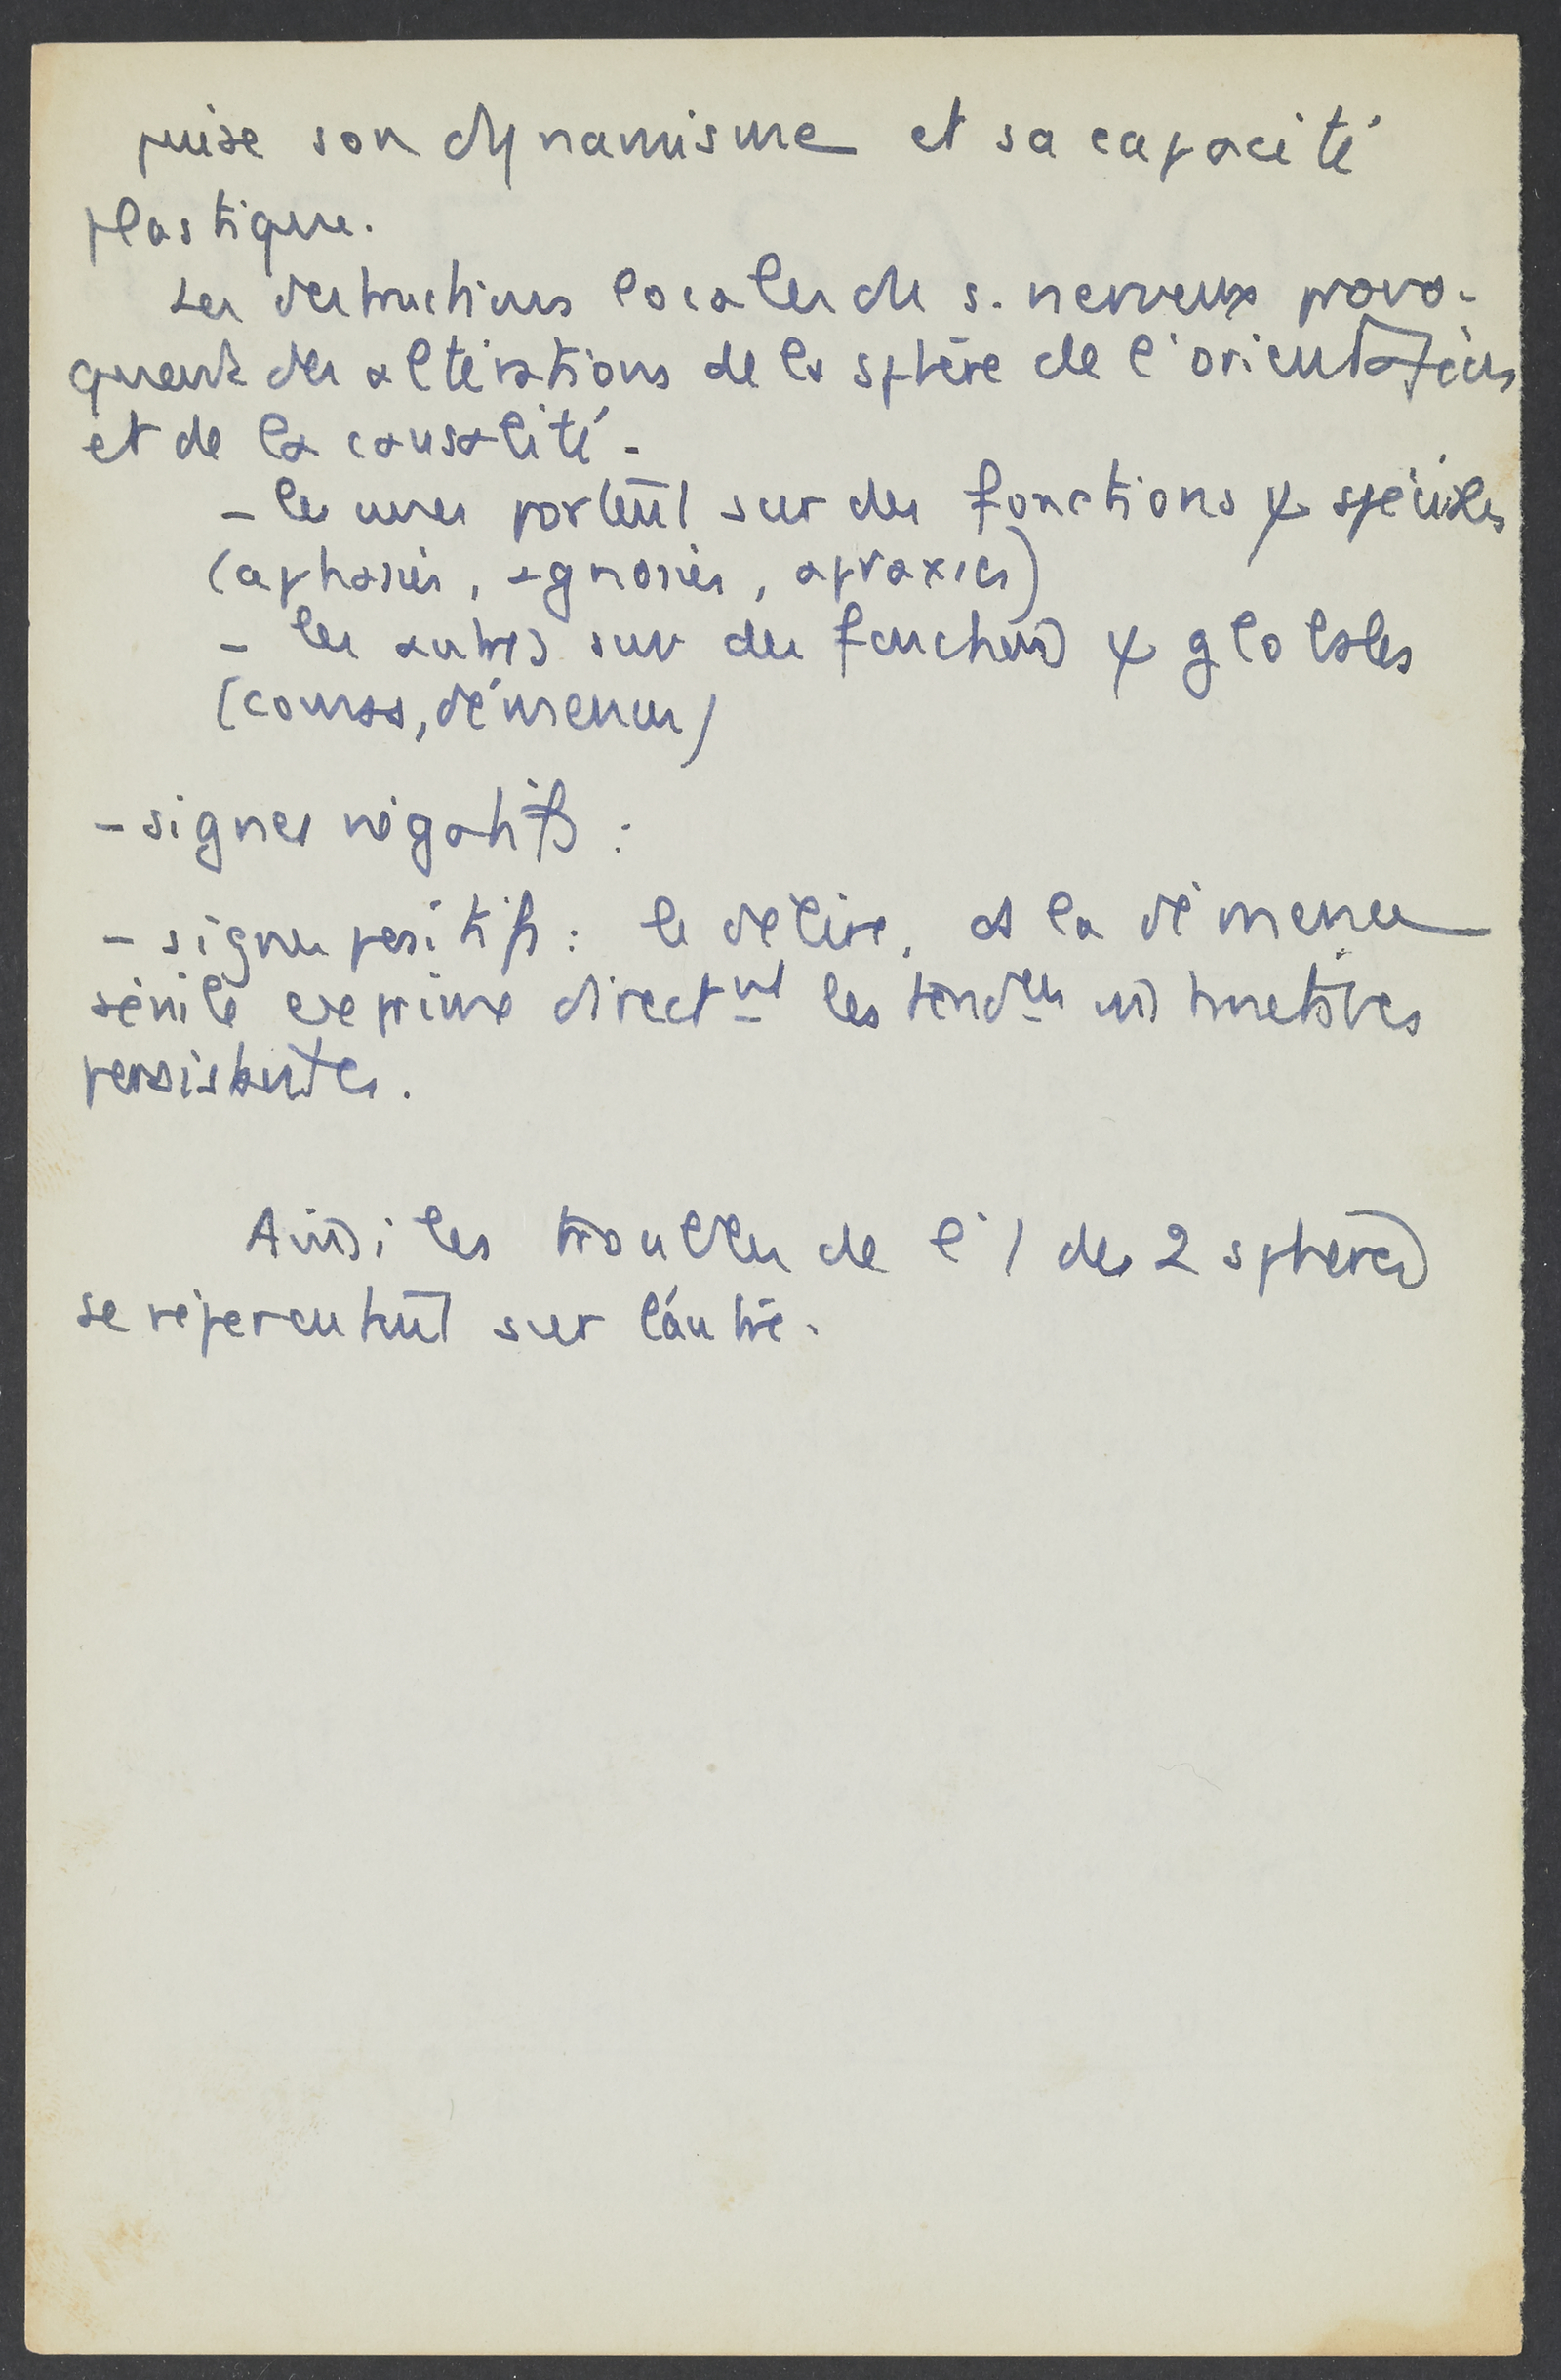 puise son dynamisme et sa capacité
plastique.
Les destructions locales du s. nerveux provo-
quent des altérations de la sphère de l'orientation
et de la causalité.
- les unes portent sur des fonctions + spéciales
(aphasies, agnosies, apraxies)
- les autres sur des fonctions + globales
(comas, démences)
- signes négatifs :
- signes positifs : le délire, ds la démence
sénile exprime direct^nt les tend^ces instinctives
persistantes.
Ainsi les troubles de l'1 des 2 sphères
se répercutent sur l'autre.